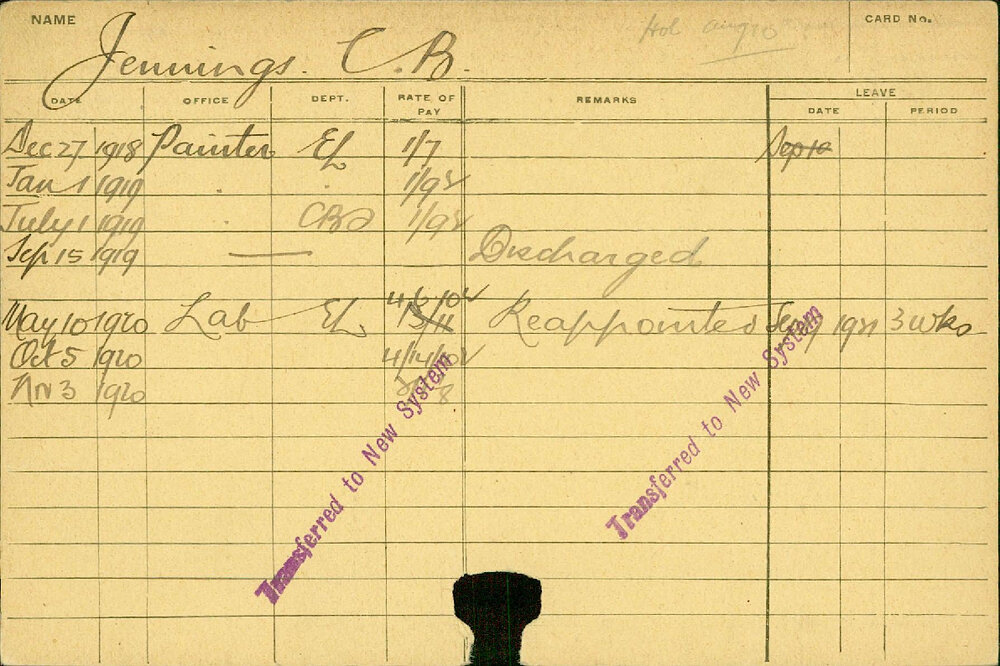 NAME Jennings. C.B. Hol aug 10 CARD No.
DATE OFFICE DEPT. RATE OF PAY REMARKS LEAVE
DATE PERIOD
Dec 27 1918 Painter EL 1/7 Sep 10
Jan 1 1919 1/9½
July 1 1919 1/9½
Sep 15 1919 — Discharged
May 10 1920 Lab EL Reappointed 1921 3 wks
Oct 5 1920
Nov 3 1920
Transferred to New System
Transferred to New System